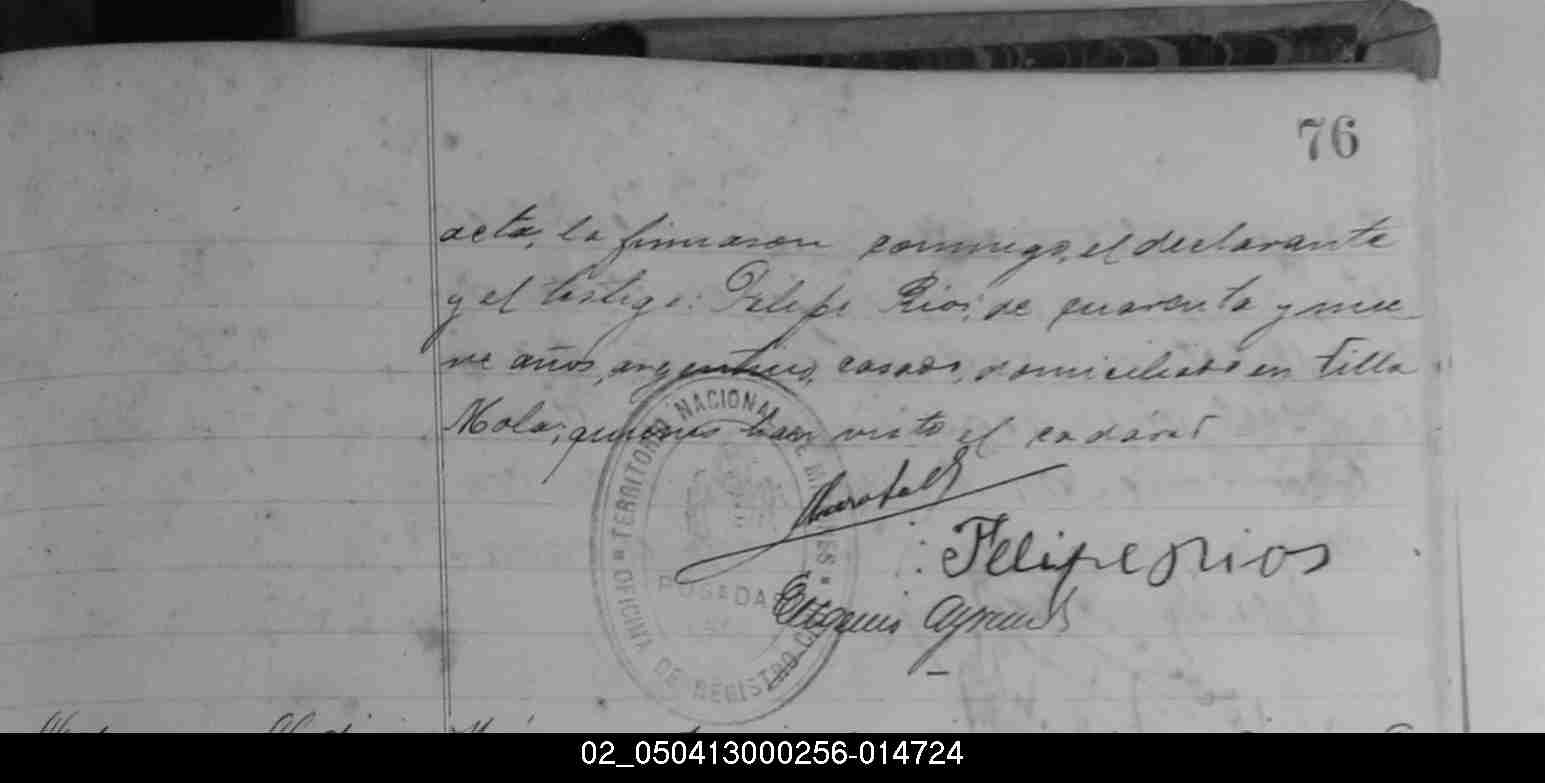 76
acta, la firmaron conmigo, el declarante
y el testigo: Felipe Rios, de cuarenta y nue-
ve años, argentino, casado, domiciliado en Villa
Mola; quienes han visto el cadáver
Felipe Rios
Eugenio
OFICINA DE REGISTRO CIVIL
TERRITORIO NACIONAL DE MISIONES
POSADAS
02_050413000256-014724